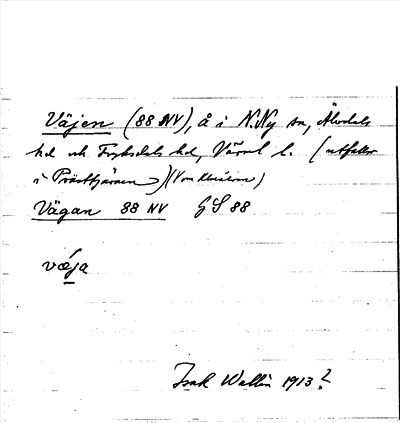 Väjen (88 NV), å i N. Ny sn, Älvdals
hd och Fryksdals hd, Värml l. (utfaller
i Prästtjärnen)
Vägan 88 NV GS 88
väja
Isak Wallin 1913?